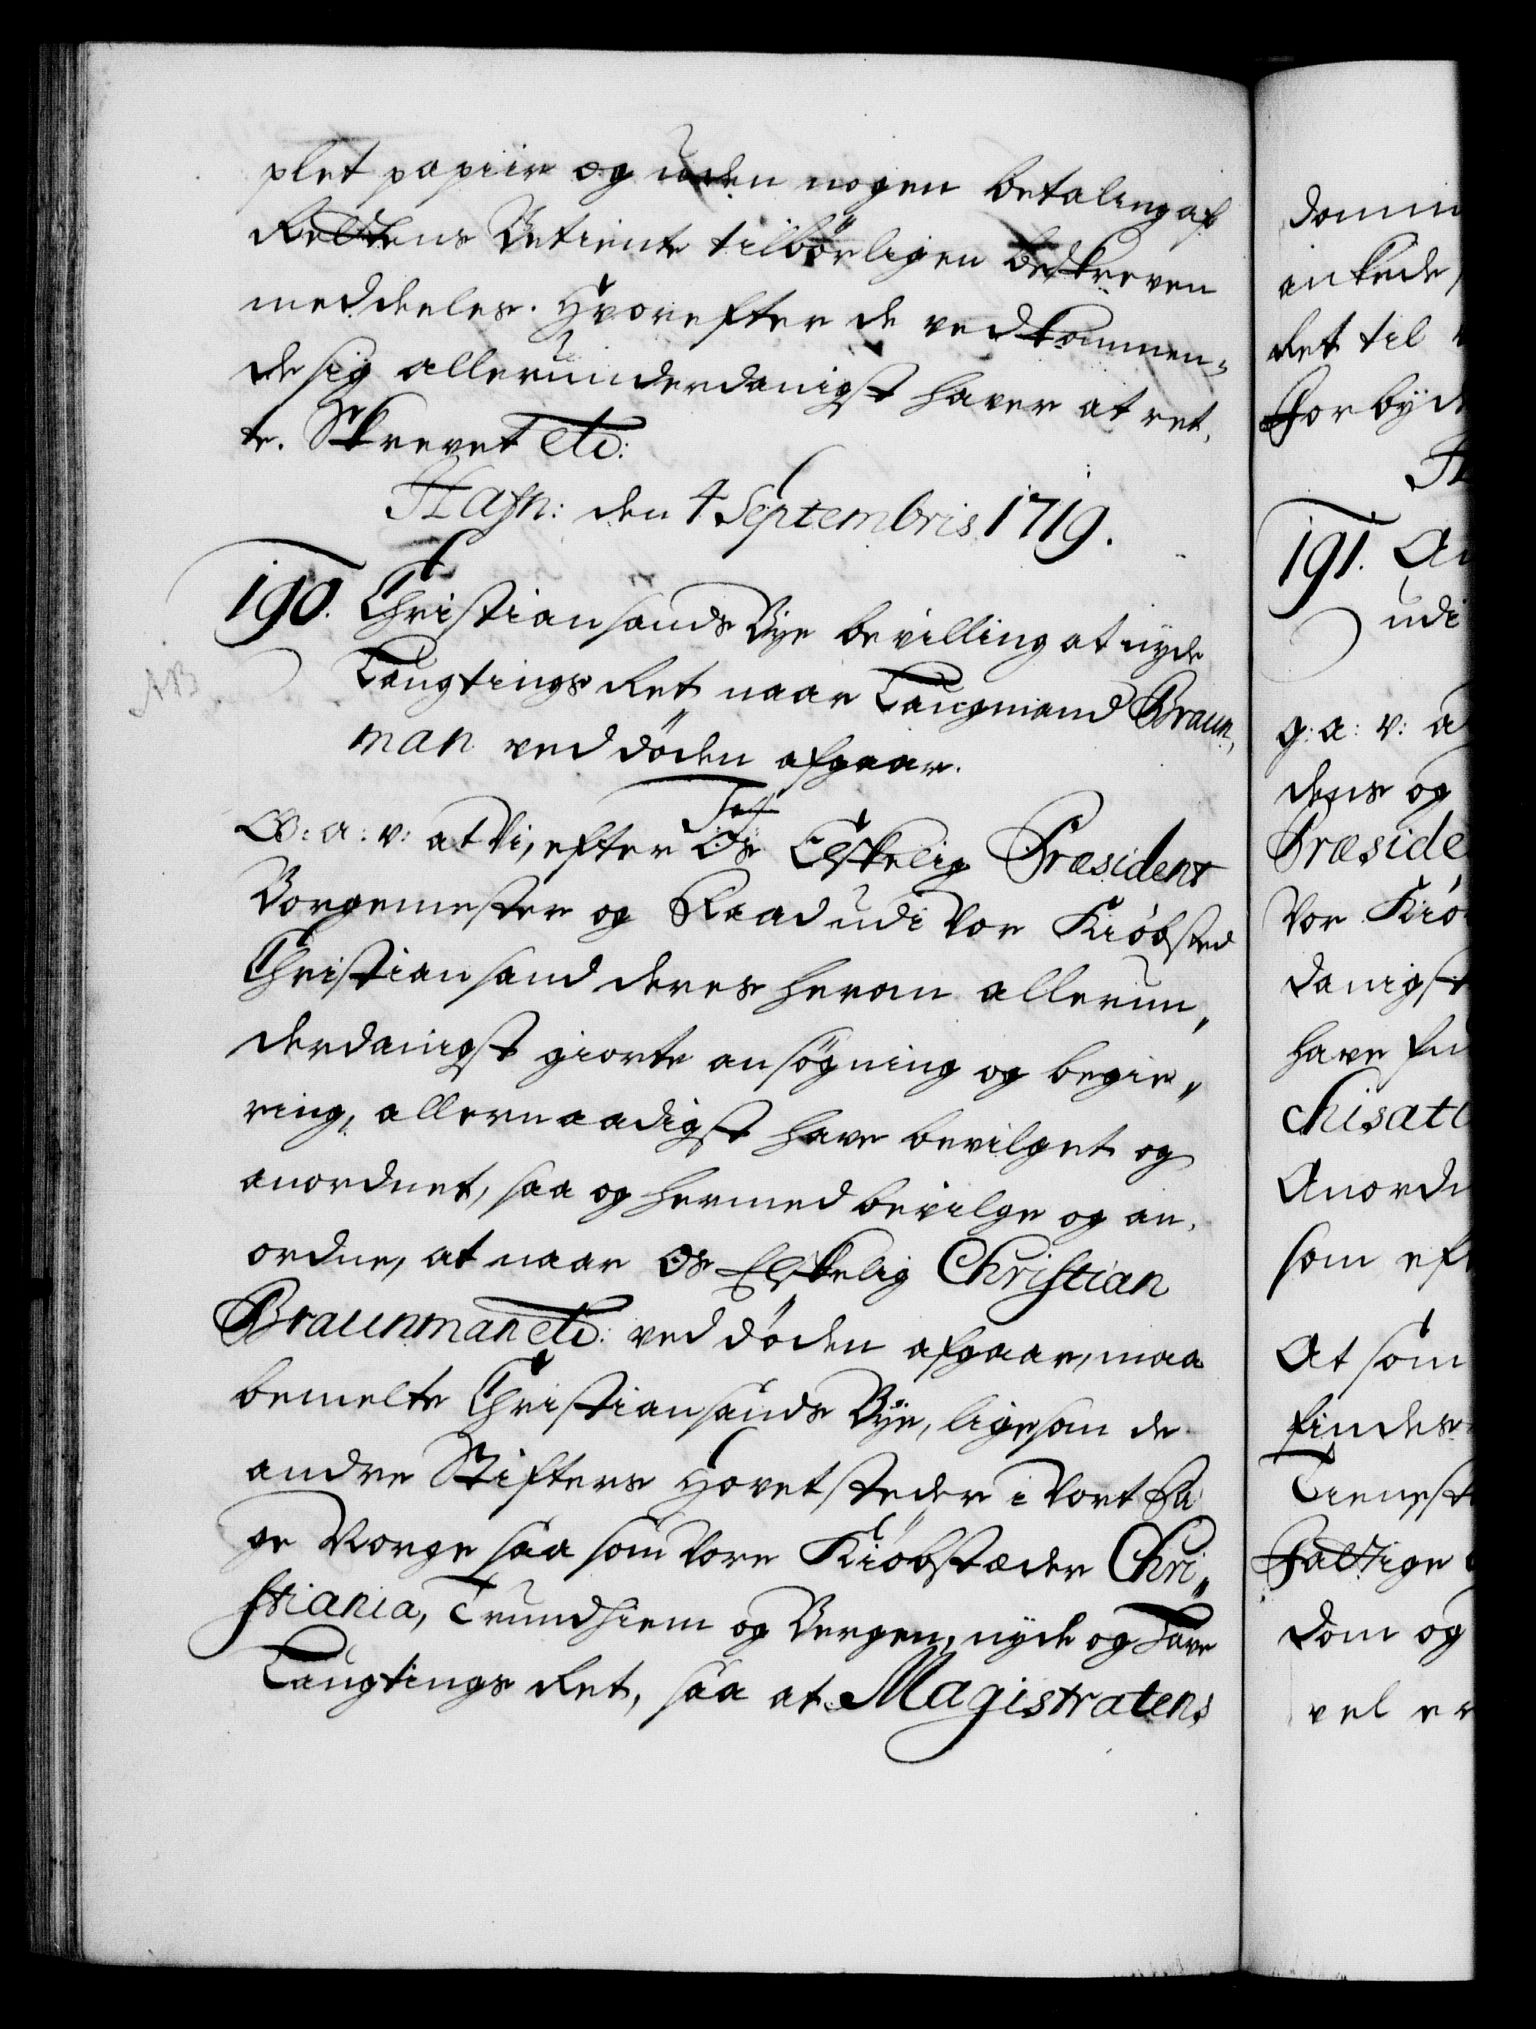 plet papiir og uden nogen betaling af
Rettens Betiente tilbørligen beskreven
meddeeles. Hvorefter de vedkommen-
de sig allerunderdanigst haver at ret-
te. Skrevet etc:
Hafn: den 4 Septembris 1719.
190. Christiansands Bye bevilling at nyde
Laugtings Ret naar Laugmand Braun-
man ved døden afgaar.
NB
G: a: v: at Vi, efter Os Elskelig Præsident
Borgemester og Raad udi Vor Kiøbsted
Christiansand deres herom allerun-
derdanigst giorte ansøgning og begie-
ring, allernaadigst have bevilget og
anordnet, saa og hermed bevilge og an-
ordne, at naar Os Elskelig Christian
Braunman etc: ved døden afgaar, maa
bemelte Christiansands Bye, ligesom de
andre Stifters Hovetstæder i Vort Ri-
ge Norge saa som Vore Kiøbstæder Chri-
stiania, Trundhiem og Bergen, nyde og have
Laugtings Ret, saa at Magistratens
domm
ankede,
Ret til
forbyde
191.
udi
g: a: v: a
dens og
Præside
Vor Kiø
danigst
have fu
chisati
Anordn
som eft
At som
findes
Tienest
faltige
dom og
vel er